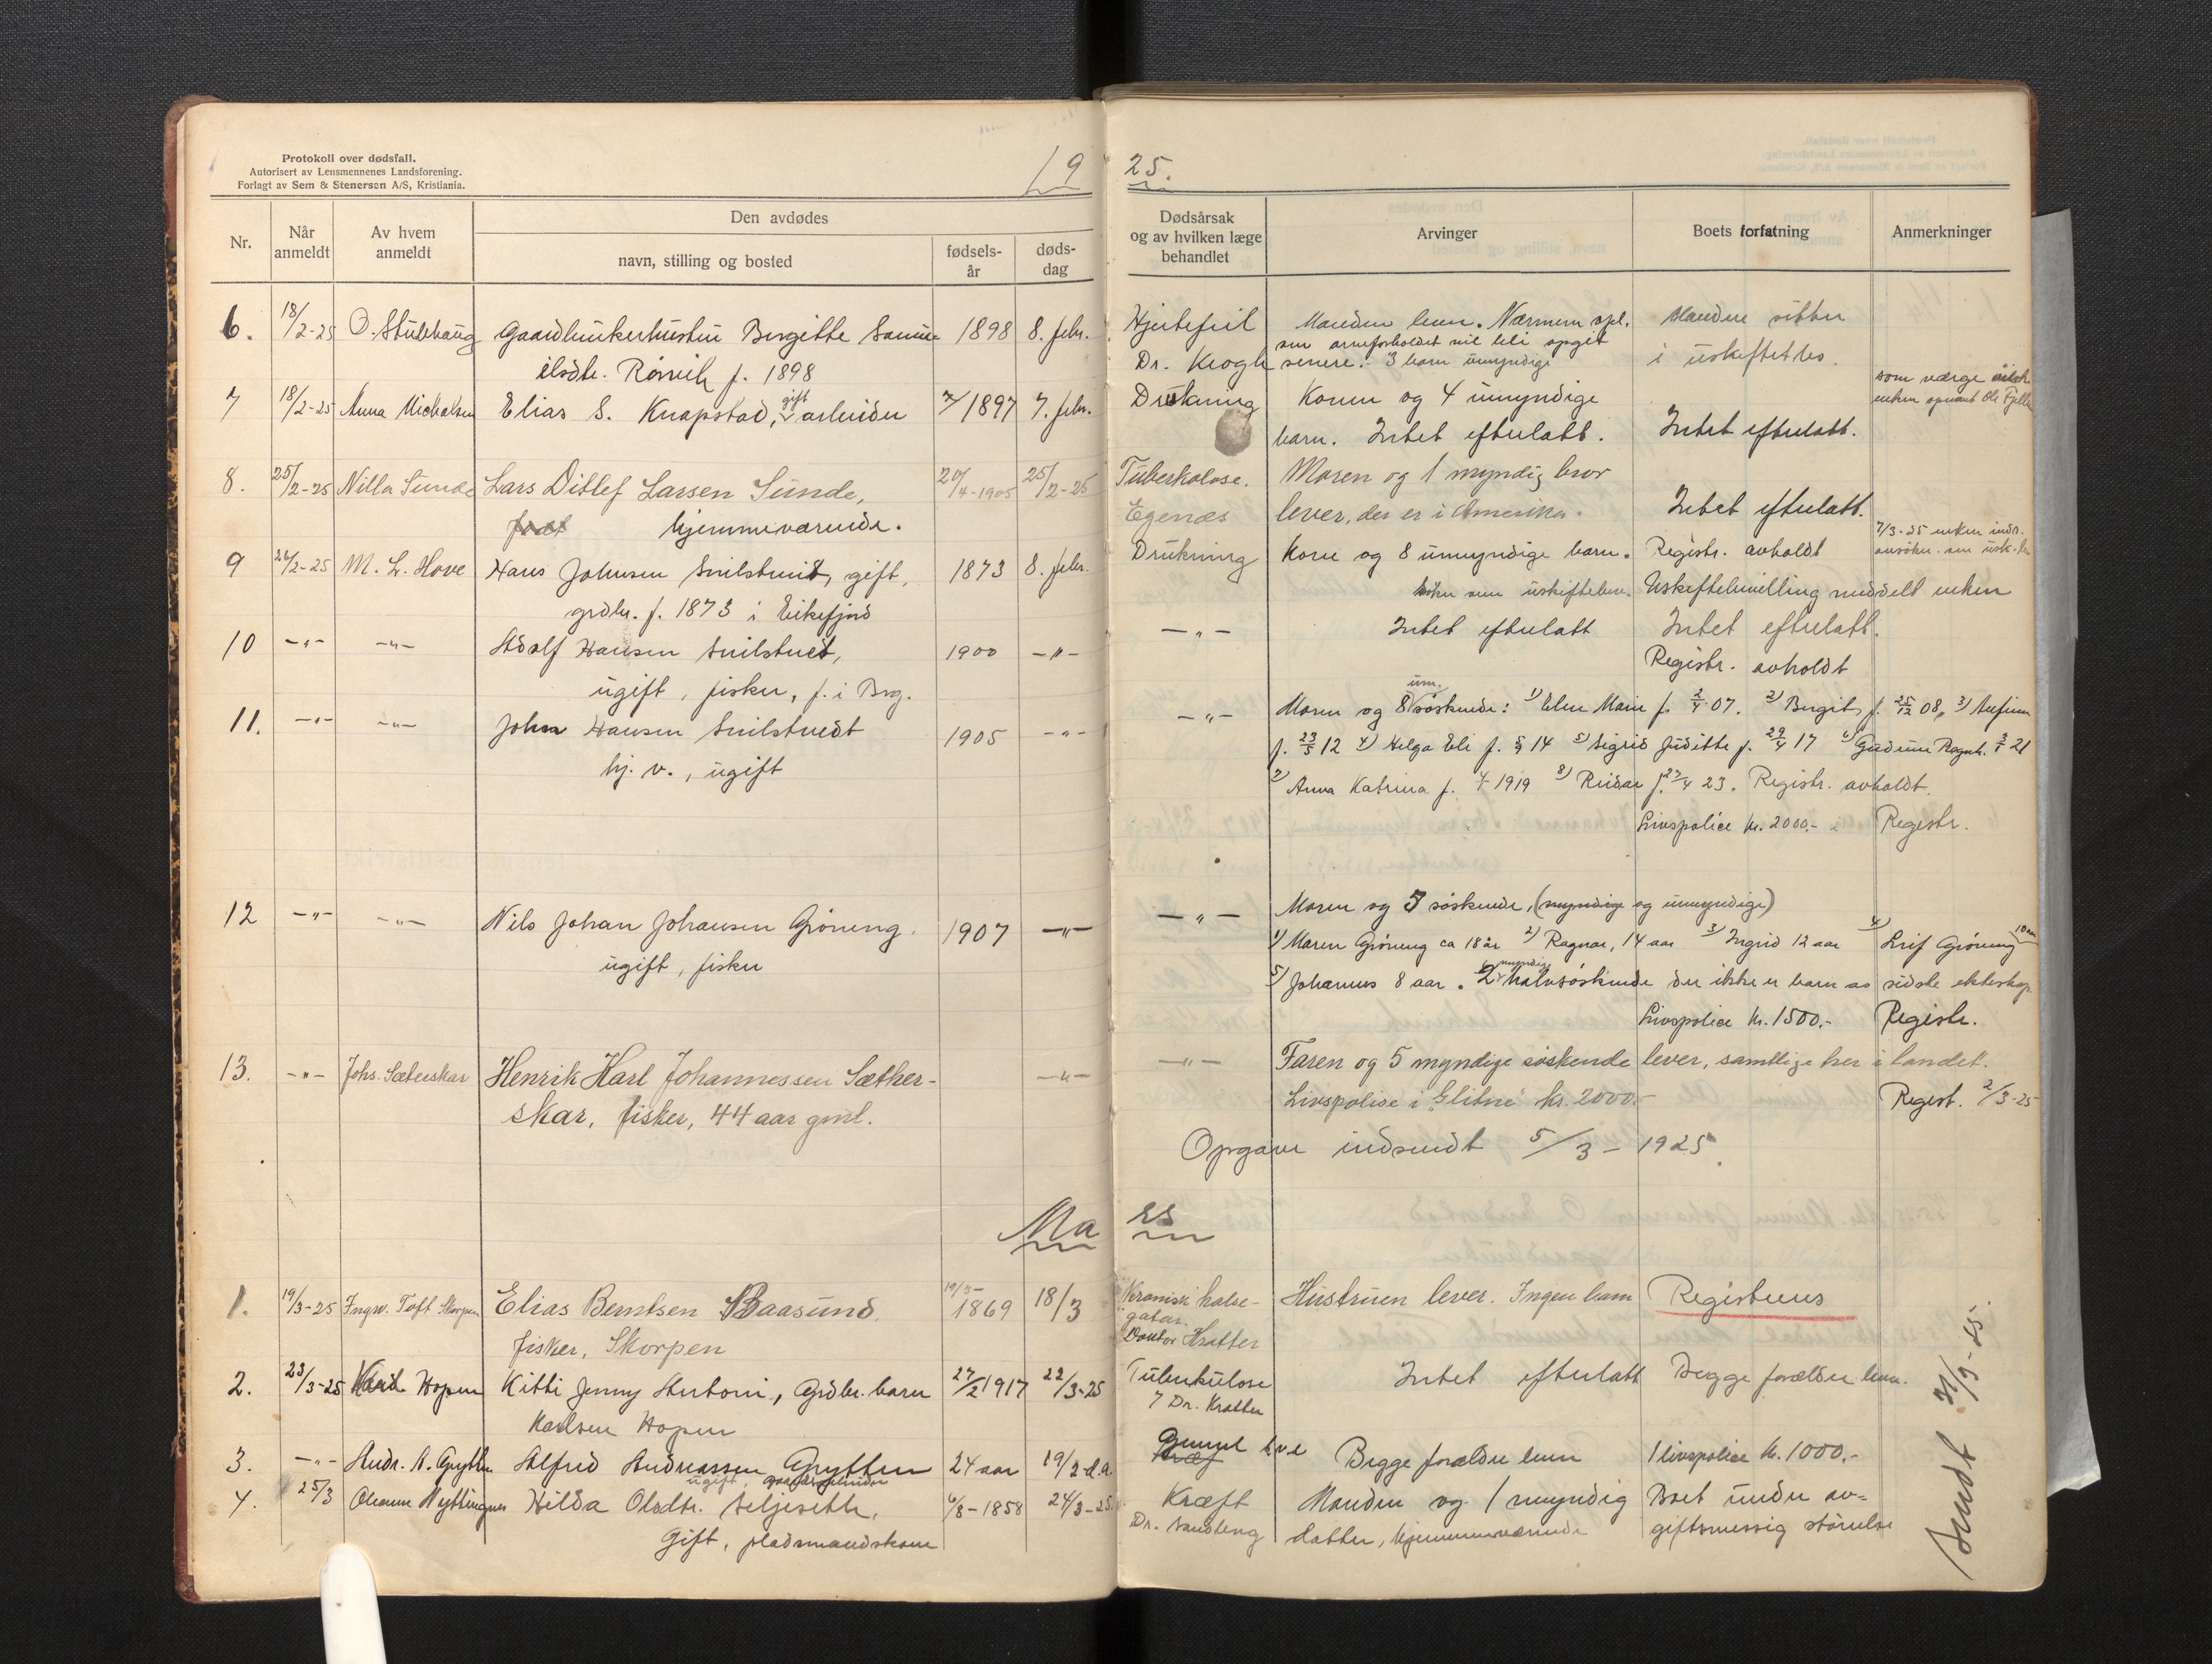 Protokoll over dødsfall.
Autorisert av Lensmennenes Landsforening.
Forlagt av Sem & Stenersen A/S, Kristiania.
19 25.
Nr.
Når anmeldt
Av hvem anmeldt
Den avdødes
navn, stilling og bosted
fødselsår
dødsdag
Dødsårsak og av hvilken læge behandlet
Arvinger
Boets forfatning
Anmerkninger
6. 18/2-25 O. Stulehaug Gaardbrukerhustru Birgitte Samu- 1898 8. febr. Hjertefeil Manden lever. Nærmere opl. Manden sitter
elsdtr. Rørvik f. 1898 Dr. Krogh om arveforholdet vil bli opgit i uskiftet bo.
senere. 3 barn umyndige
7 18/2-25 Anna Michalsen Elias S. Knapstad, gift arbeider 1897 7. febr. Drukning Konen og 4 umyndige
som værge
barn. Intet efterlatt. Intet efterlatt.
8. 25/2-25 Nilla Sunde Lars Ditlef Larsen Sunde, 20/4-1905 25/2-25 Tuberkolose. Moren og 1 myndig bror
hjemmeværende. Egenæs lever, der er i Amerika. Intet efterlatt.
9 26/2-25 M. L. Hove Hans Johnsen Snilstveit, gift, 1873 8. febr. Drukning Kone og 8 umyndige barn. Registr. avholdt 7/3-25 enken inds.
grdbr. f. 1873 i Eikefjord søker om uskiftebev. Uskiftebevilling meddelt enken
10 -"- -"- Adolf Hansen Snilstvedt, 1900 -"- -"- Intet efterlatt Intet efterlatt.
ugift, fisker, f. i Brg. Registr. avholdt
11. -"- -"- John Hansen Snilstvedt 1905 -"- -"- Moren og 8 um. søskende: 1) Elen Marie f. 2/4 07. 2) Bergit f. 25/12 08, 3) Arfinn
hj. v., ugift f. 23/5 12 4) Helga Eli f. 5/9 14 5) Sigrid Juditte f. 29/4 17 6) Gudrun Ragnh. 3/1 21
7) Anna Katrina f. 1919 8) Reidar f. 27/4 23. Registr. avholdt.
Livspolice kr. 2000,- i Registr.
12 -"- -"- Nils Johan Johansen Grøneng. 1907 -"- -"- Moren og 5 søskende, (myndige og umyndige)
ugift, fisker 1) Maren Grøneng ca 18 år 2) Ragnar, 14 aar 3) Ingrid 12 aar 4) Leif Grøneng 10 aar
5) Johannes 8 aar. 2 myndige halvsøskende der ikke er barn av sidste ekteskap
Livspolice kr. 1500,- Registr.
13. -"- Johs. Sæterskar Henrik Karl Johannessen Sæther- -"- -"- Faren og 5 myndige søskende lever, samtlige her i landet.
skar, fisker, 44 aar gml. Livspolise i "Glitne" kr. 2000.- Regist. 2/3-25
Opgave indsendt 5/3 - 1925.
Ma rs
1. 19/3-25 Ingv. Toft Skorpen Elias Berntsen Baasund. 1869 18/3 Kronisk halse- Hustruen lever. Ingen barn Registreres
fisker, Skorpen gatar. Doktor Kratter
2. 23/3-25 Hopen Kitti Jenny Antoni, Grdbr. barn 27/2 1917 22/3-25 Tuberkulose Intet efterlatt Begge forældre lever.
Karlsen Hopen Dr. Kratter
3. -"- Andr. A. Grytten Alfred Andreassen Grytten 24 aar 19/2 d.a. Begge forældre lever 1 livspolice kr. 1000,-
ugift, gaardsarbeider
4. 25/3 Oleanne Nyttingnes Hilda Olsdtr. Seljesette, 6/8-1858 24/3-25 Kræft Manden og 1 myndig Boet under av-
Gift, pladsmandskone Dr. Sandberg datter, hjemmeværende giftsmessig størrelse
Sendt 31/3-25.